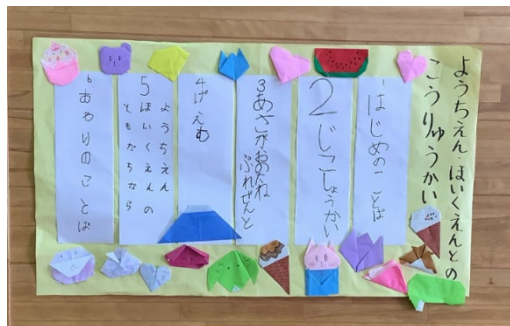 ようちえん・ほいくえんとの
こうりゅうかい
1はじめのことば
2じこしょうかい
3あさがおのたね
ぷれぜんと
4げえむ
5ようちえん
ほいくえんの
ともだちから
6おわりのことば